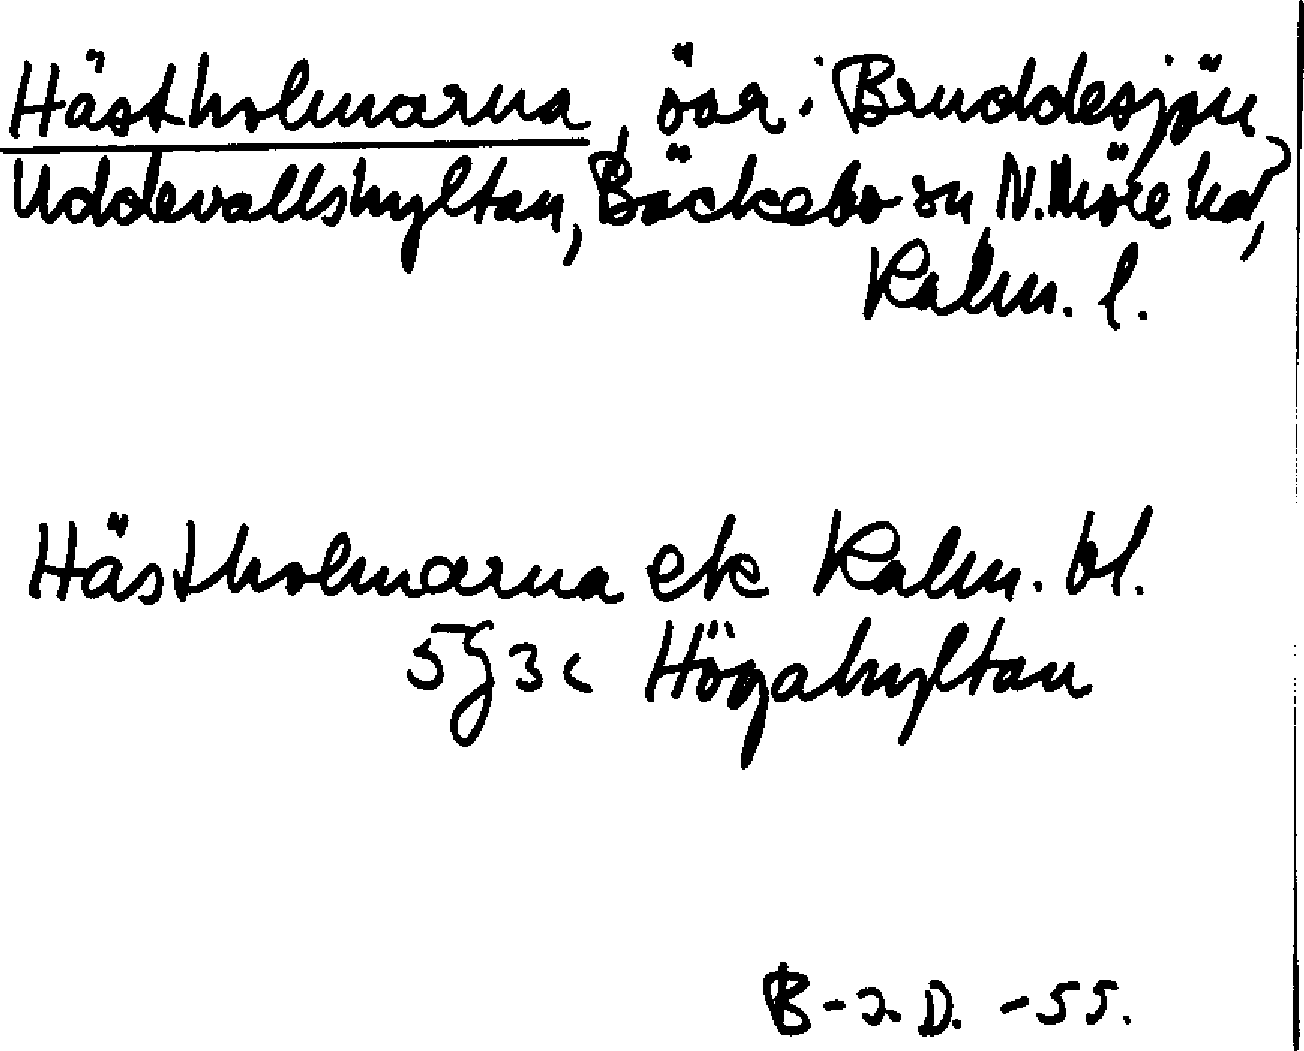 Hästholmarna, öar i Bruddesjön,
Uddevallshyltan, Bäckebo sn N. Möre hd,
Kalm. l.
Hästholmarna ek Kalm. bl.
5G3c Högahyltan
B-J. D. -55.